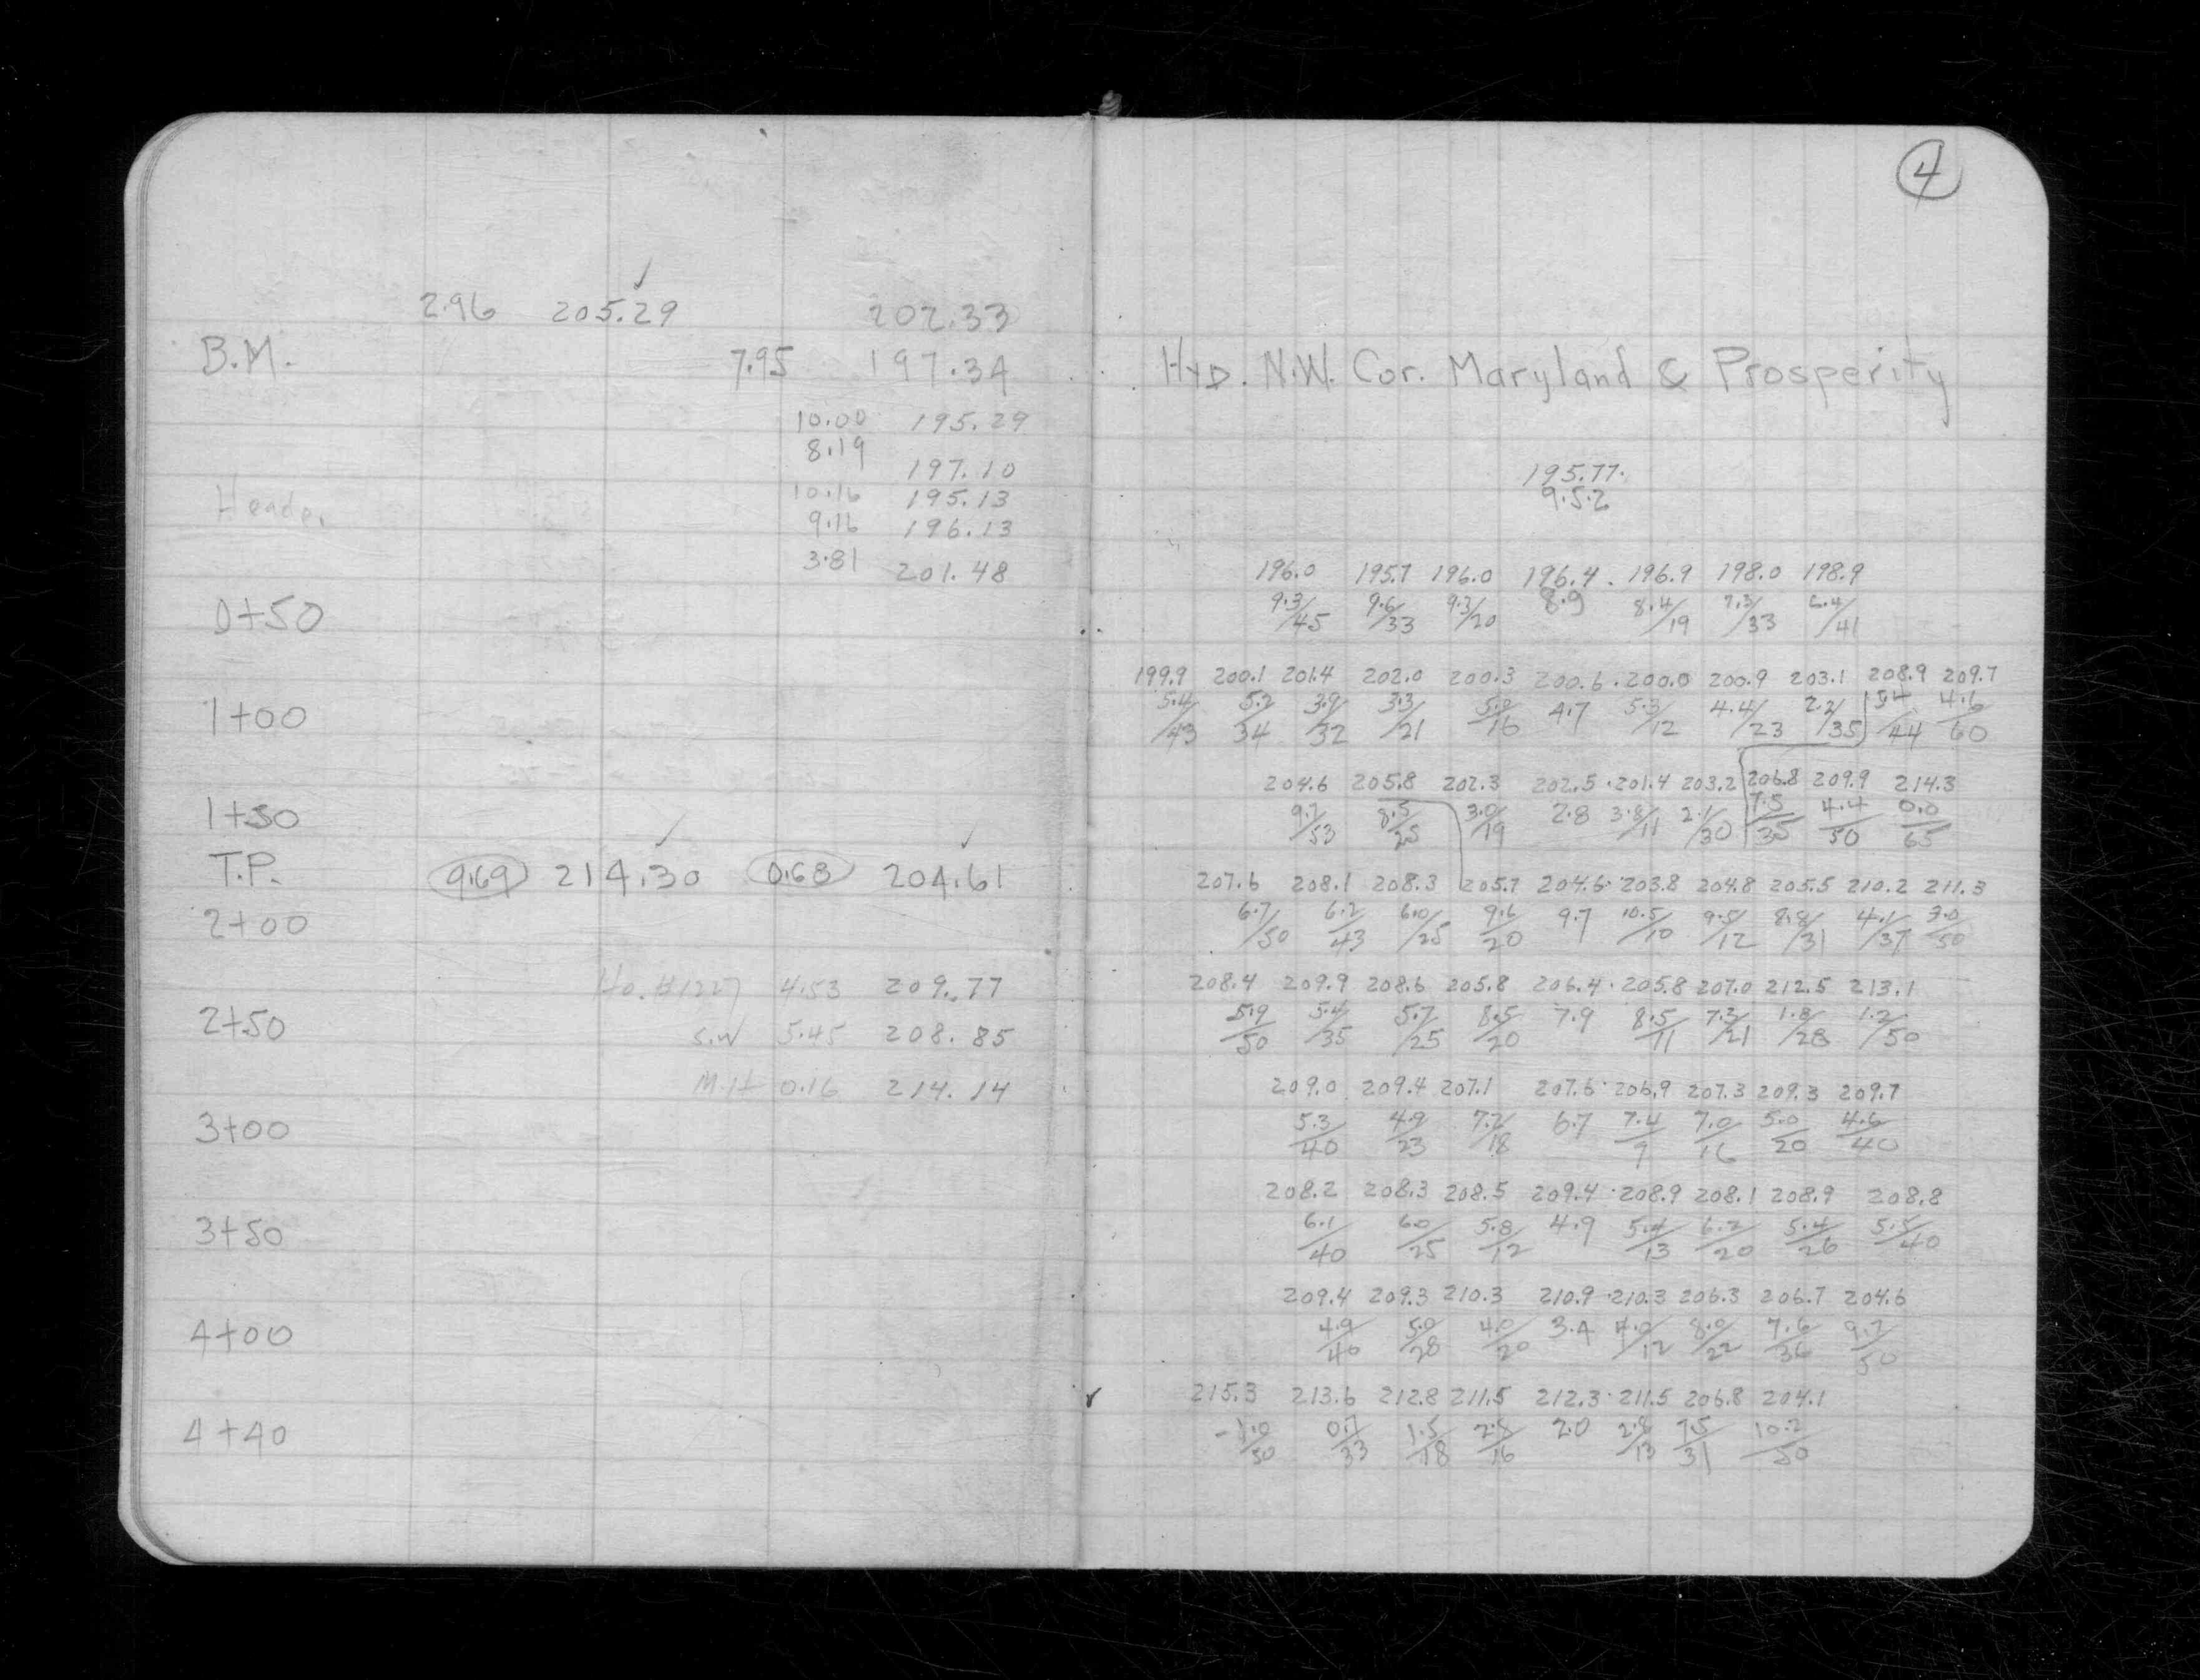 4
2.96 205.29 202.33
B.M. 7.95 197.34 Hyd. N.W. Cor. Maryland & Prosperity
10.00 195.29
8.19 197.10 195.77
10.16 195.13 9.52
Header 9.16 196.13
3.81 201.48
196.0 195.7 196.0 196.4 196.9 198.0 198.9
0+50 9.3/45 9.6/33 9.3/20 8.9 8.4/19 7.3/33 6.4/41
199.9 200.1 201.4 202.0 200.3 200.6 200.0 200.9 203.1 208.9 209.7
1+00 5.4/43 5.2/34 3.9/32 3.3/21 5.0/16 4.7 5.3/12 4.4/23 2.2/35 5.4/44 4.6/60
204.6 205.8 202.3 202.5 201.4 203.2 206.8 209.9 214.3
1+50 9.7/53 8.5/25 3.0/19 2.8 3.8/11 2.1/30 7.5/35 4.4/50 0.0/65
T.P. 9.69 214.30 0.68 204.61
207.6 208.1 208.3 205.7 204.6 203.8 204.8 205.5 210.2 211.3
2+00 6.7/50 6.2/43 6.0/25 9.6/20 9.7 10.5/10 9.5/12 8.8/31 4.1/37 3.0/50
Ho. #1227 4.53 209.77
208.4 209.9 208.6 205.8 206.4 205.8 207.0 212.5 213.1
2+50 5.9/50 5.4/35 5.7/25 8.5/20 7.9 8.5/11 7.3/21 1.8/28 1.2/50
S.W 5.45 208.85
M.H 0.16 214.14
209.0 209.4 207.1 207.6 206.9 207.3 209.3 209.7
3+00 5.3/40 4.9/23 7.2/18 6.7 7.4/9 7.0/16 5.0/20 4.6/40
208.2 208.3 208.5 209.4 208.9 208.1 208.9 208.8
3+50 6.1/40 6.0/25 5.8/12 4.9 5.4/13 6.2/20 5.4/26 5.5/40
209.4 209.3 210.3 210.9 210.3 206.3 206.7 204.6
4+00 4.9/40 5.0/28 4.0/20 3.4 4.0/12 8.0/22 7.6/36 9.7/50
215.3 213.6 212.8 211.5 212.3 211.5 206.8 204.1
4+40 -1.0/50 0.7/33 1.5/18 2.8/16 2.0 2.8/13 7.5/31 10.2/50